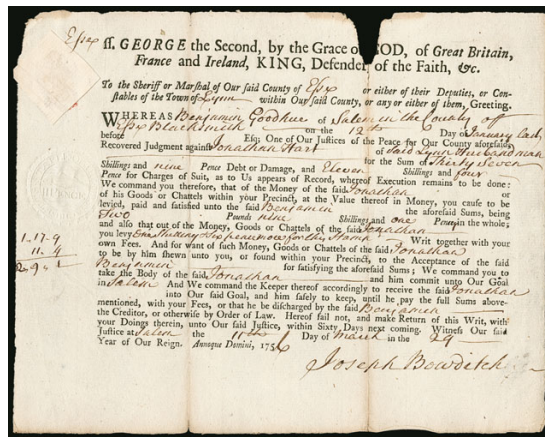 Essex ss. GEORGE the Second, by the Grace of GOD, of Great Britain,
France and Ireland, KING, Defender of the Faith, &c.
To the Sheriff or Marshal of Our said County of Essex or either of their Deputies, or Con-
stables of the Town of Lynn within Our said County, or any or either of them, Greeting.
WHEREAS Benjamin Goodhue of Salem in the County off
Essex Blacksmith on the 12th Day of January Last,
before Esq; One of our Justices of the Peace for Our County aforesaid,
Recovered Judgment against Jonathan Hart of said Lynn Husbandman
for the Sum of Thirty Seven
Shillings and nine Pence Debt or Damage, and Eleven Shillings and four
Pence for Charges of Suit, as to Us appears of Record, whereof Execution remains to be done:
We command you therefore, that of the Money of the said Jonathan or
of his Goods or Chattels within your Precinct, at the Value thereof in Money, you cause to be
levied, paid and satisfied unto the said Benjamin the aforesaid Sums, being
Two Pounds nine Shillings and one Penny in the whole;
and also that out of the Money, Goods or Chattels of the said Jonathan
you levy One Shilling & Six pence more for the Stamp Writ together with your
own Fees. And for want of such Money, Goods or Chattels of the said Jonathan
to be by him shewn unto you, or found within your Precinct, to the Acceptance of the said
Benjamin for satisfying the aforesaid Sums; We command you to
take the Body of the said Jonathan and him commit unto Our Goal
in Salem And We command the Keeper thereof accordingly to receive the said Jonathan
into Our said Goal, and him safely to keep, until he pay the full Sums above-
mentioned, with your Fees, or that he be discharged by the said Benjamin
the Creditor, or otherwise by Order of Law. Hereof fail not, and make Return of this Writ, with
your Doings therein, unto Our said Justice, within Sixty Days next coming. Witness Our said
Justice at Salem the 11th Day of March in the 29
Year of Our Reign. Annoque Domini, 1756
Joseph Bowditch
1-17-9
11-4
2-9-1